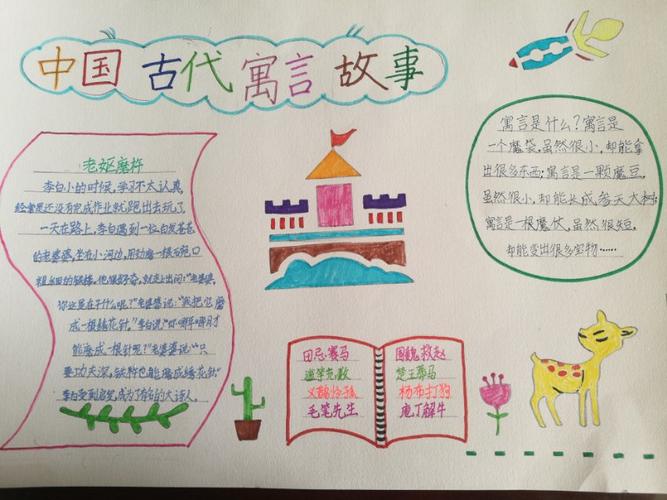 中国古代寓言故事
老妪磨杵
李白小的时候,学习不太认真
经常是还没有完成作业就跑出去玩了
一天在路上,李白遇到一位白发苍苍
的老婆婆,坐在小河边,用劲磨一根石
粗的铁棒。他很好奇,就走上去问:“老婆婆,
你这是在干什么呢?”老婆婆说:“我把它磨
成一根绣花针。”李白说:“你哪年哪月才
能磨成一根针呢?”老婆婆说:“只
要功夫深,铁杵也能磨成绣花针”
李白受到启发,成为了有名的大诗人。
寓言是什么?寓言是
一个魔袋,虽然很小,却能拿
出很多东西;寓言是一颗魔豆,
虽然很小,却能长成参天大树;
寓言是一根魔仗,虽然很短,
却能变出很多实物……
田忌赛马
围魏救赵
楚王葬马
杨布打狗
毛笔先生
庖丁解牛